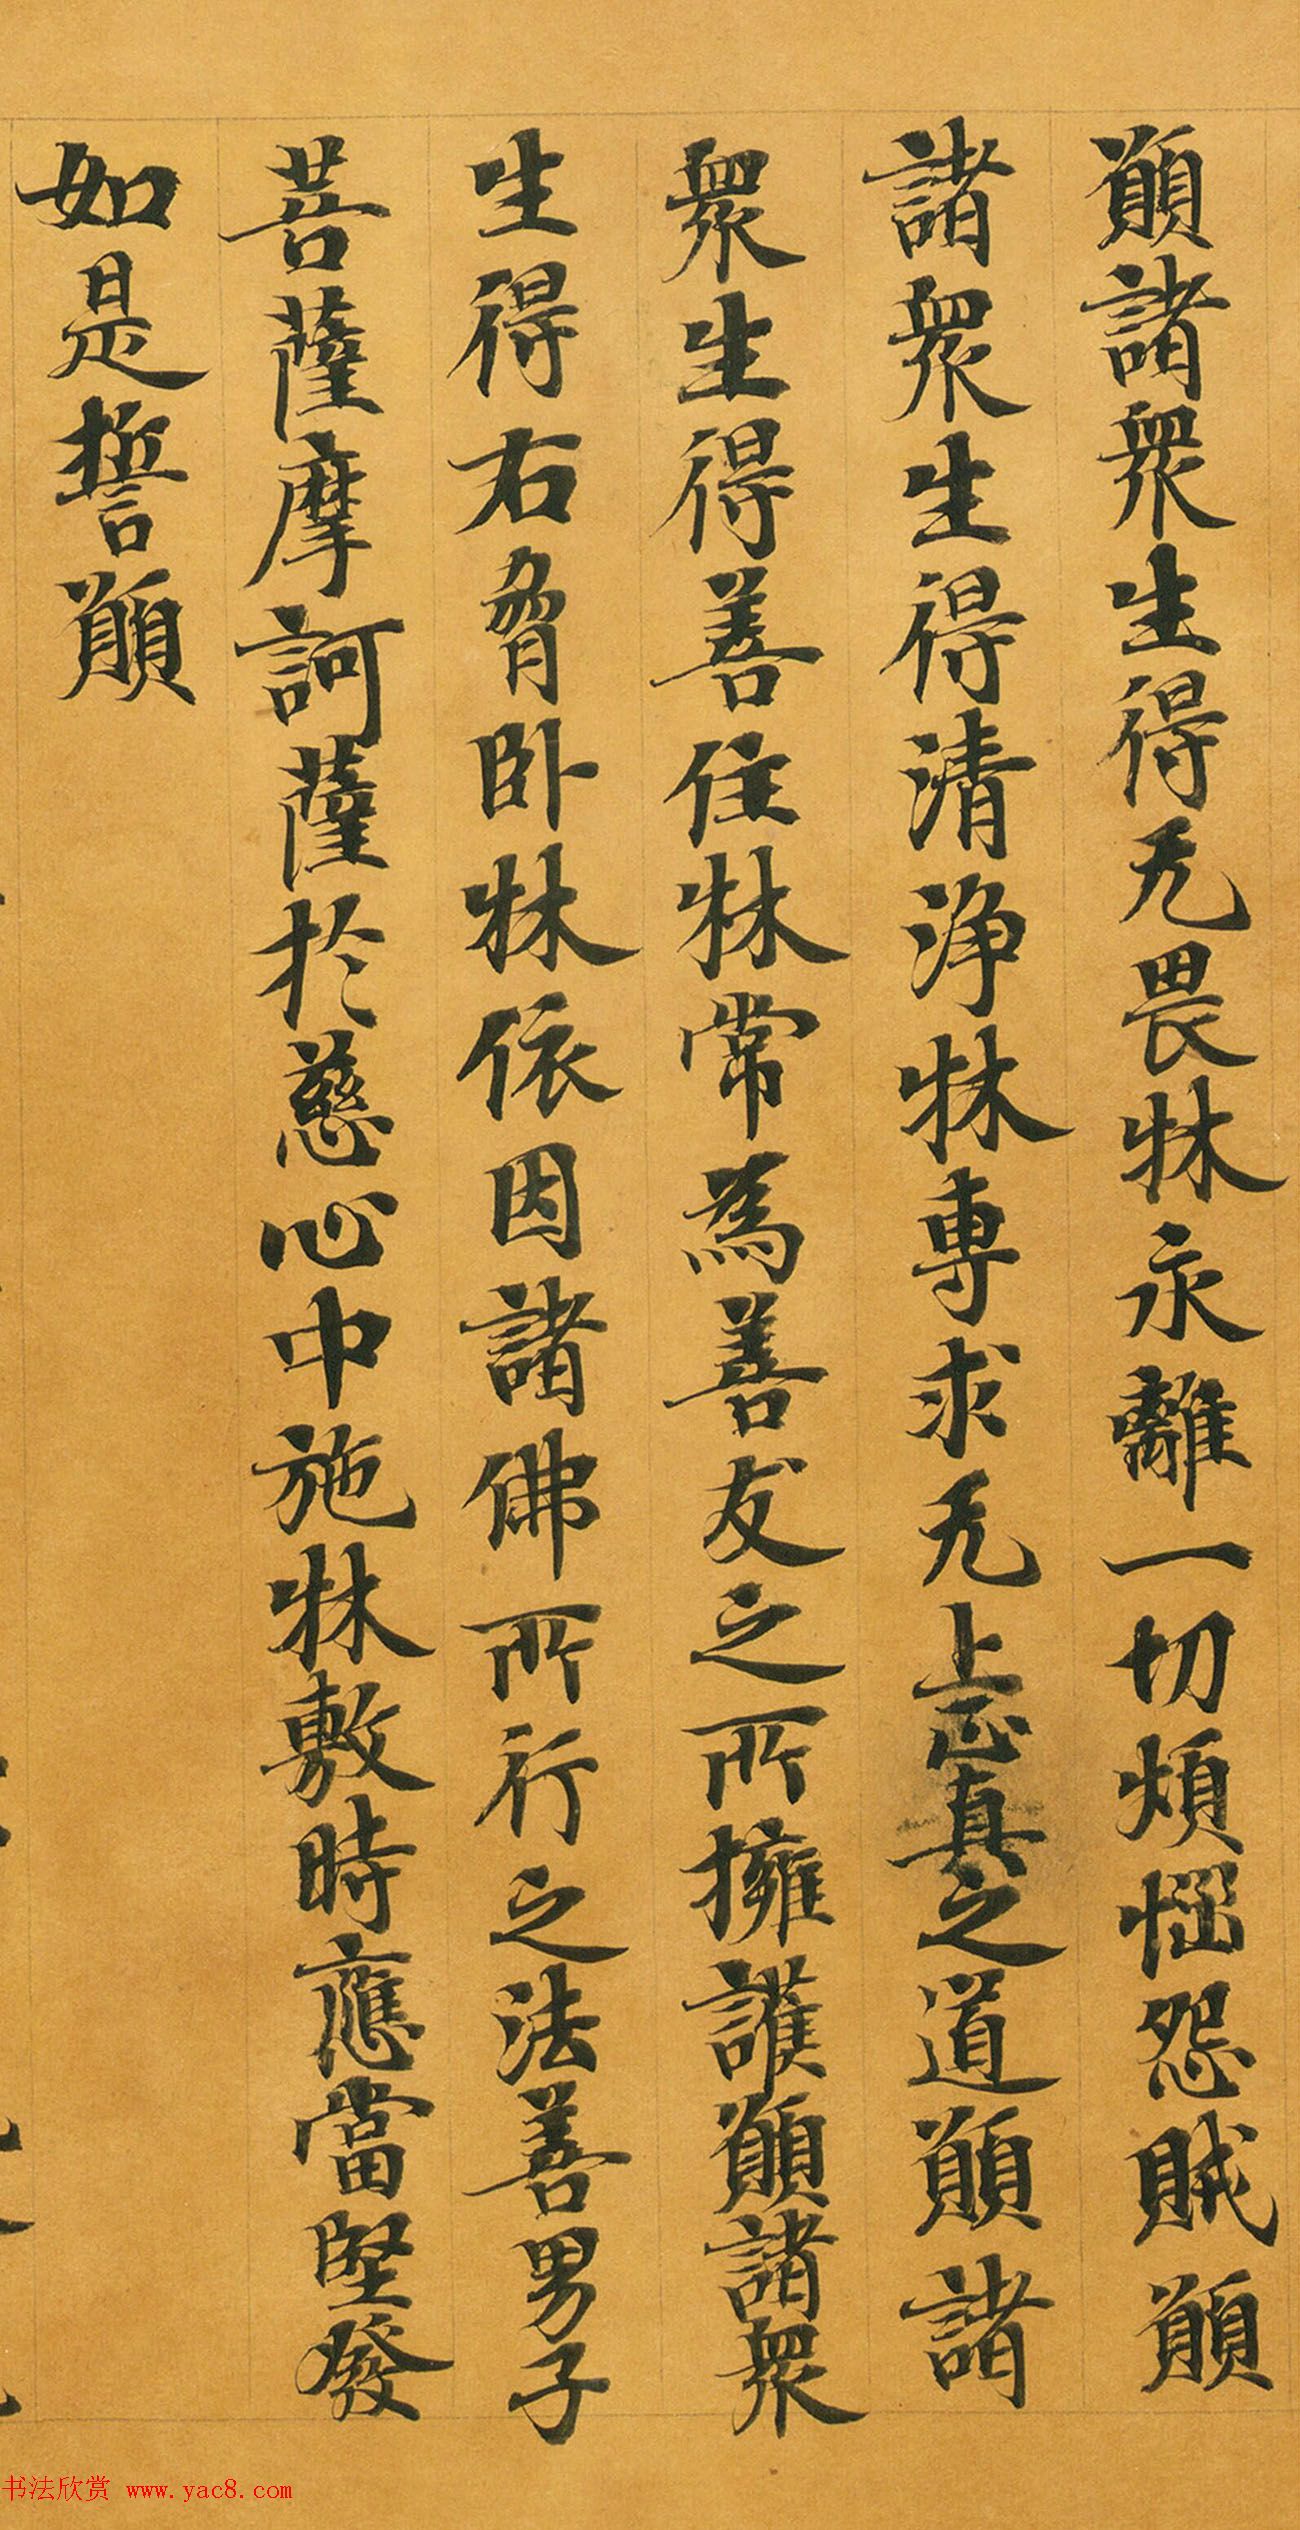 願諸衆生得无畏牀永離一切煩惱怨賊願
諸衆生得清淨牀專求无上正真之道願諸
衆生得善住牀常為善友之所擁護願諸衆
生得右脅卧牀依因諸佛所行之法善男子
菩薩摩訶薩於慈心中施牀敷時應當堅發
如是誓願
书法欣赏 www.yac8.com